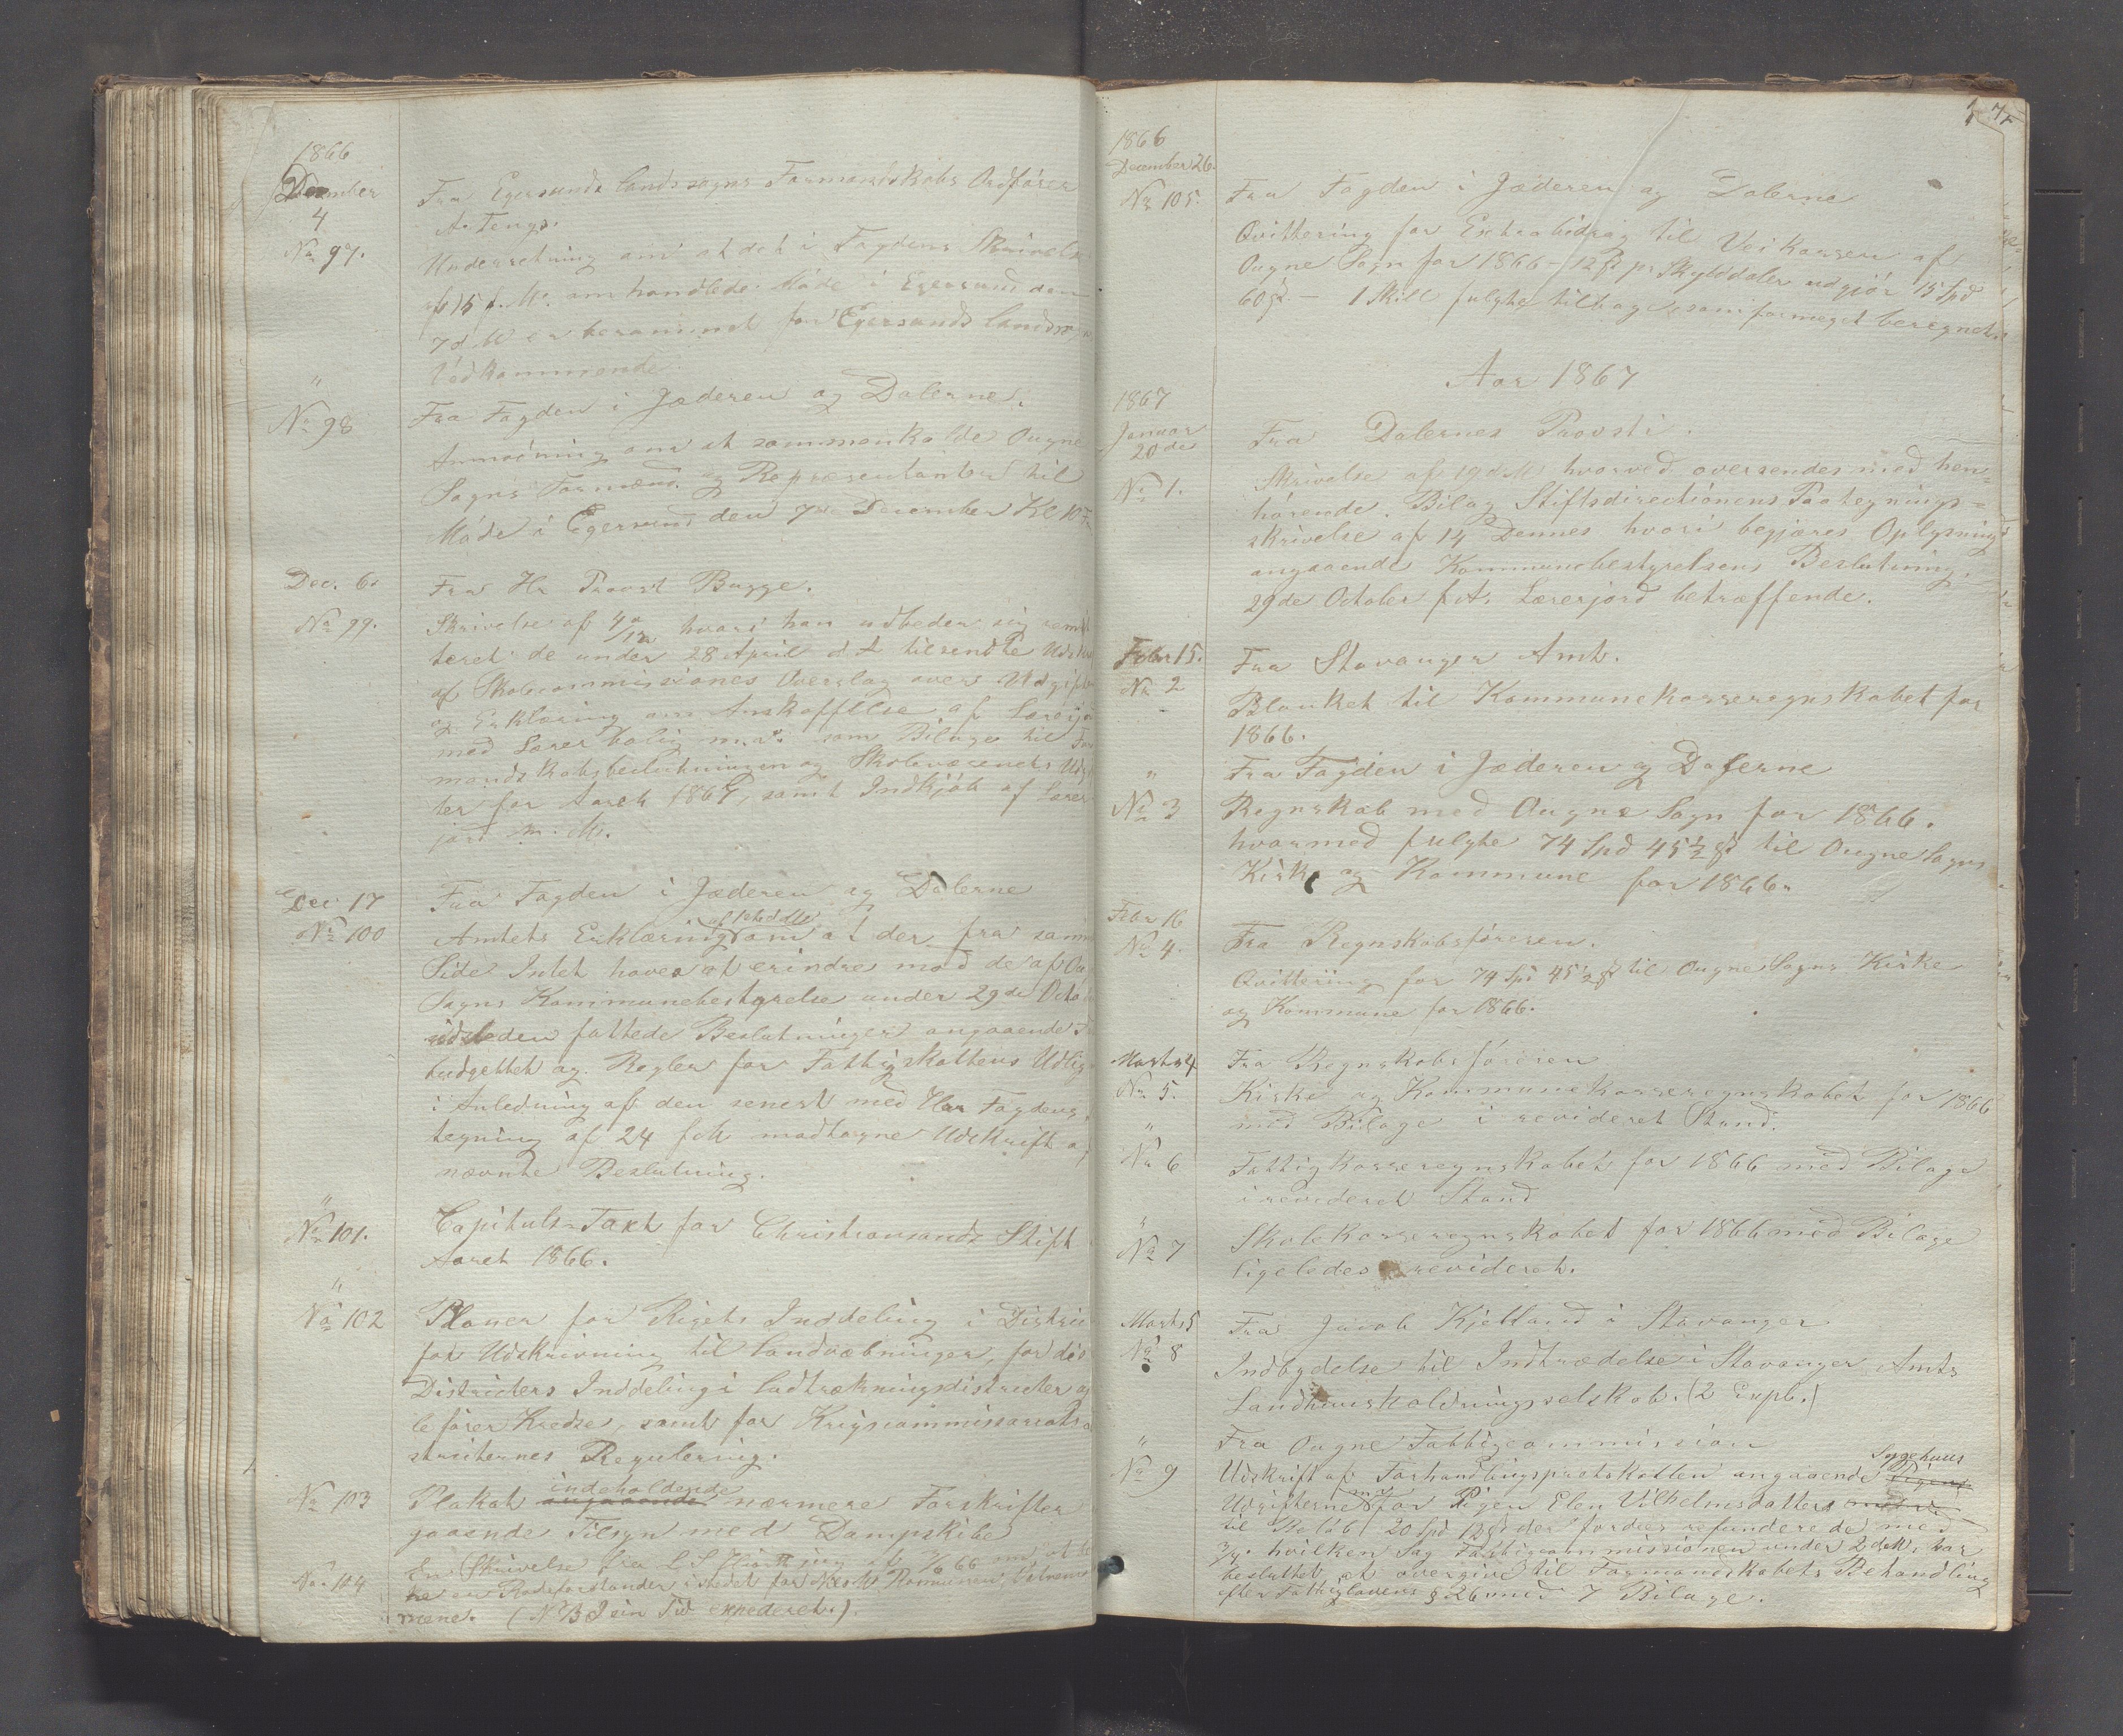 1866
December
4
No 97.
Fra Egersunds Landssogns Formandskabs Ordfører
A. Tengs.
Underretning om at det i Fogdens Skrivelse
af 15 f. M. omhandlede Møde i Egersund den
7 d. M. er berammet for Egersunds Landsogns
Vedkommende
"
No 98
Fra Fogden i Jæderen og Dalerne.
Anmodning om at sammenkalde Ougne
Sogns Formænd og Repræsentanter til
Møde i Egersund den 7de December Kl 10
Dec. 6.
No 99.
Fra Hr Provst Bugge.
Skrivelse af 4a/12a hvori han udbeder sig remit
teret de under 28 April d. A. tilsendte Udskr
af Skolecommissiones Overslag over Udgifter
og Erklæring om Anskaffelse af Lærerjor
med Lærer bolig m.v. som Bilage til For
mandskabsbeslutningen og Skolevæsenets Udgif
ter for Aaret 1867, samt Indkjøb af Lærer
jord m. M.
Dec 17
No 100
Fra Fogden i Jæderen og Dalerne
Amtets Erklæring om at der fra samme
Side Intet haves at erindre mod de af Ou
Sogns Kommunebestyrelse under 29de Octo
sidstleden fattede Beslutninger angaaende
budgettet og Regler for Fattigskattens Udlig
i Anledning af den senest med Herr Fogdens
tegning af 24 f.M. modtagne Udskrift af
nævnte Beslutning.
"
No 101.
Capituls-Taxt for Christiansands Stift
Aaret 1866.
"
No 102
Planer for Rigets Inddeling i Distric
for Udskrivning til Landvæbningen, for dis
Districters Inddeling i Indtrækningsdistricter og
leforer Kredse, samt for Krigscommissariats
stricternes Regulering.
No 103
Plakat angaaende indeholdende nærmere Forskrifter
gaaende Tilsyn med Dampskibe
No 104
En Skrivelse fra
en Rodeforstander istedet for
mene. (NB I sin Tid expederet.)
1866
December 26.
No 105.
Fra Fogden i Jæderen og Dalerne
Qvittering for Extrabidrag til Veikassen af
Ougne Sogn for 1866 - 12 ß pr Skylddaler udgjør 15 Spd
60 ß. - 1 Skill fulgte tilbage, som formeget beregnet.
Aar 1867
1867
Januar
20de
No 1.
Fra Dalernes Provsti.
Skrivelse af 19 d. M. hvorved oversendes med hen=
hørende Bilag Stiftsdirectionens Paategnings=
skrivelse af 14 Dennes hvori begjæres Oplysning
angaaende Kommunebestyrelsens Beslutning
29de October f. A. Lærerjord betræffende.
Febr 15.
No 2
Fra Stavanger Amt.
Blanket til Kommunekasseregnskabet for
1866.
"
No 3
Fra Fogden i Jæderen og Dalerne
Regnskab med Ougne Sogn for 1866.
hvormed fulgte 74 Spd 45½ ß til Ougne Sogns
Kirke og Kommune for 1866.
Febr 16
No 4.
Fra Regnskabsføreren.
Qvittering for 74 Spd 45½ ß til Ougne Sogns Kirke
og Kommune for 1866.
Marts 4
No 5.
Fra Regnskabsføreren
Kirke og Kommunekasseregnskabet for 1866
med Bilage i revideret Stand.
"
No 6
Fattigkasseregnskabet for 1866 med Bilage
i revideret Stand
"
No 7
Skolekasseregnskabet for 1866 med Bilage
ligeledes revideret.
Marts 5
No 8
Fra Jacob Kjelland i Stavanger
Indbydelse til Indtrædelse i Stavanger Amts
Landhuusholdningsselskab. (2 Expl.)
"
No 9
Fra Ougne Fattigcommission
Udskrift af Forhandlingsprotokollen angaaende Sygehuus
Udgifterne for Pigen Elen Vilhelmsdatter
til Beløb 20 Spd 12 ß der fordres refunderede med
hvilken Sag Fattigcommissionen under 2 ds. har
besluttet at overgive til Formandskabets Behandling
efter Fattiglovens § 26 med 7 Bilage.